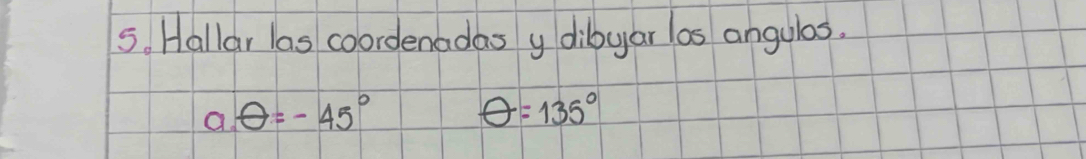 5. Hallar las coordenadas y dibujar los angulos.
a. θ = - 45° θ = 135°